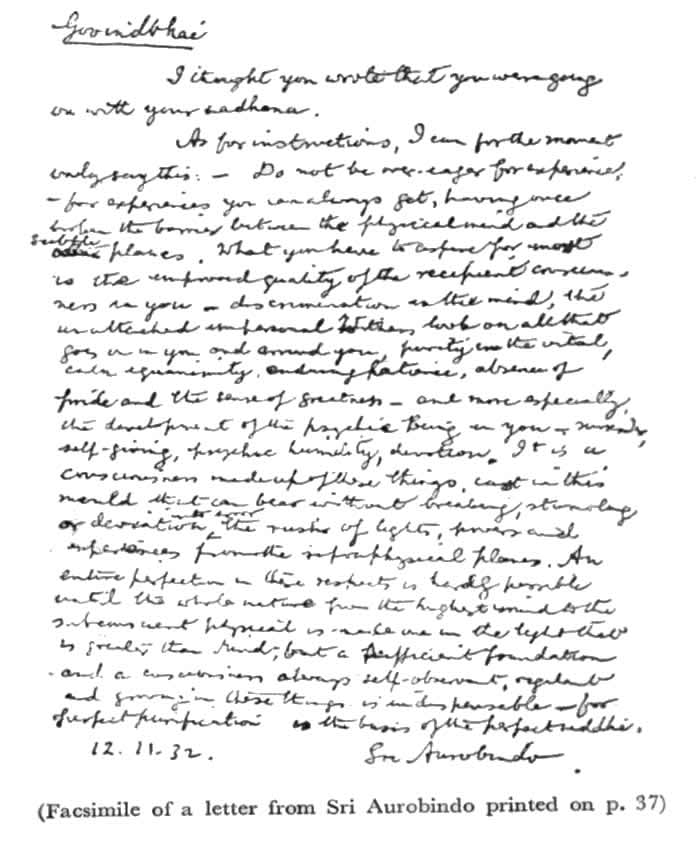 Govindbhai
I thought you wrote that you were going
on with your sadhana.
As for instructions, I can for the moment
only say this: – Do not be over-eager for experience,
– for experiences you can always get, having once
broken the barrier between the physical mind and the
subtle planes. What you have to aspire for most
is the improved quality of the recipient conscious-
ness in you – discrimination in the mind, the
unattached impersonal Witness look on all that
goes on in you and around you, purity in the vital,
calm equanimity, enduring patience, absence of
pride and the sense of greatness – and more especially,
the development of the psychic being in you – surrender,
self-giving, psychic humility, devotion. It is a
consciousness made up of these things, cast in this
mould that can bear without breaking, stumbling
or deviation into error the rush of lights, powers and
experiences from the supraphysical planes. An
entire perfection in these respects is hardly possible
until the whole nature from the highest mind to the
subconscient physical is made one in the light that
is greater than Mind; but a sufficient foundation
and a consciousness always self-observant, vigilant
and growing in these things is indispensable – for
perfect purification is the basis of the perfect siddhi.
12.11.32.
Sri Aurobindo
(Facsimile of a letter from Sri Aurobindo printed on p. 37)